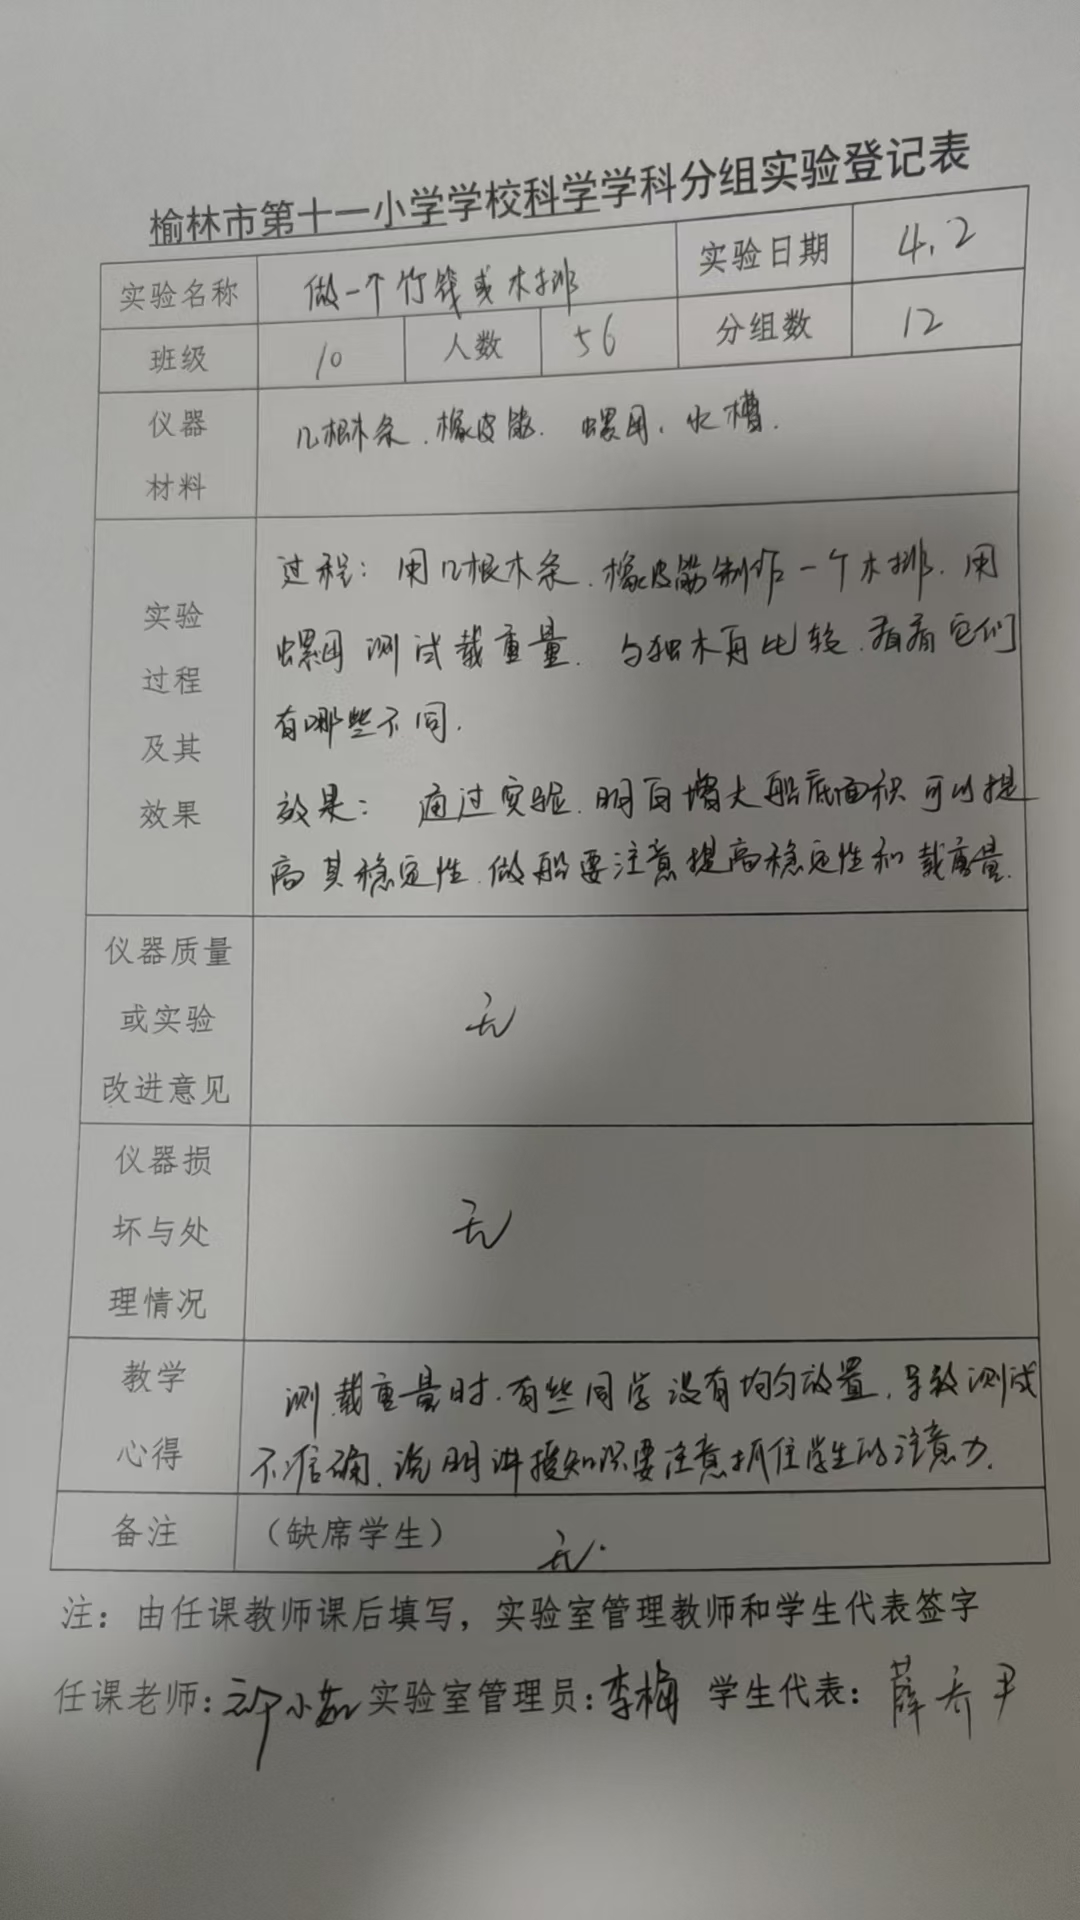 榆林市第十一小学学校科学学科分组实验登记表
实验名称 做一个竹筏或木排 实验日期 4.2
班级 10 人数 56 分组数 12
仪器
材料
几根木条.橡皮筋.螺母.水槽.
实验
过程
及其
效果
过程：用几根木条.橡皮筋制作一个木排.用
螺母测试载重量.与独木舟比较.看看它们
有哪些不同.
效果：通过实验.明白增大船底面积可以提
高其稳定性.做船要注意提高稳定性和载重量.
仪器质量
或实验
改进意见
无
仪器损
坏与处
理情况
无
教学
心得
测载重量时.有些同学没有均匀放置.导致测试
不准确.说明讲授知识要注意抓住学生的注意力.
备注 （缺席学生） 无.
注：由任课教师课后填写，实验室管理教师和学生代表签字
任课老师： 实验室管理员：李梅 学生代表：薛